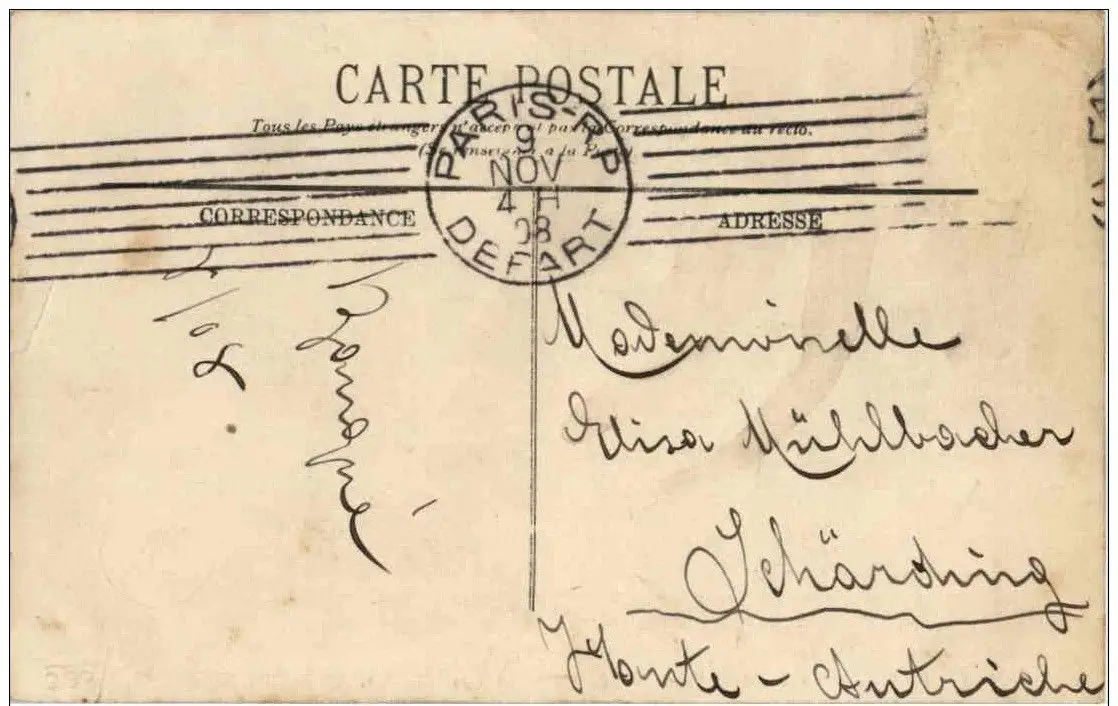 CARTE POSTALE
Tous les Pays étrangers n'acceptent pas la Correspondance au recto.
(Se renseigner à la Poste)
PARIS-R.P
9
NOV
4 H
08
DEPART
CORRESPONDANCE
ADRESSE
Mademoiselle
Elisa Mühlbacher
Schärding
Haute-Autriche